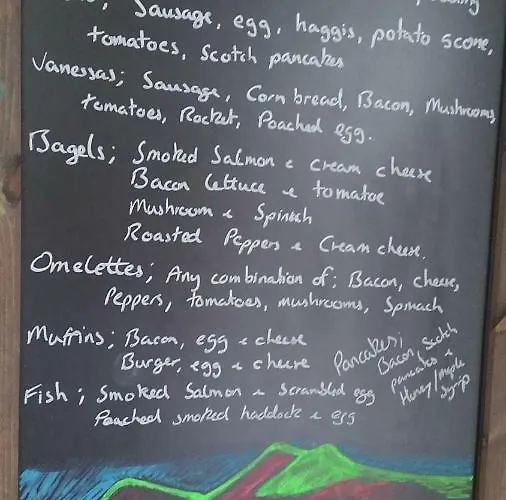 Sausage, egg, haggis, potato scone,
tomatoes, Scotch pancakes
Vanessas; Sausage, Corn bread, Bacon, Mushrooms,
tomatoes, Rocket, Poached egg.
Bagels; Smoked Salmon & cream cheese
Bacon lettuce & tomatoe
Mushroom & Spinach
Roasted Peppers & Cream cheese.
Omelettes; Any combination of; Bacon, cheese,
Peppers, tomatoes, mushrooms, Spinach
Muffins; Bacon, egg & cheese
Burger, egg & cheese
Pancakes;
Bacon, Scotch
pancakes &
Honey/maple
Syrup
Fish; Smoked Salmon & Scrambled egg
Poached smoked haddock & egg